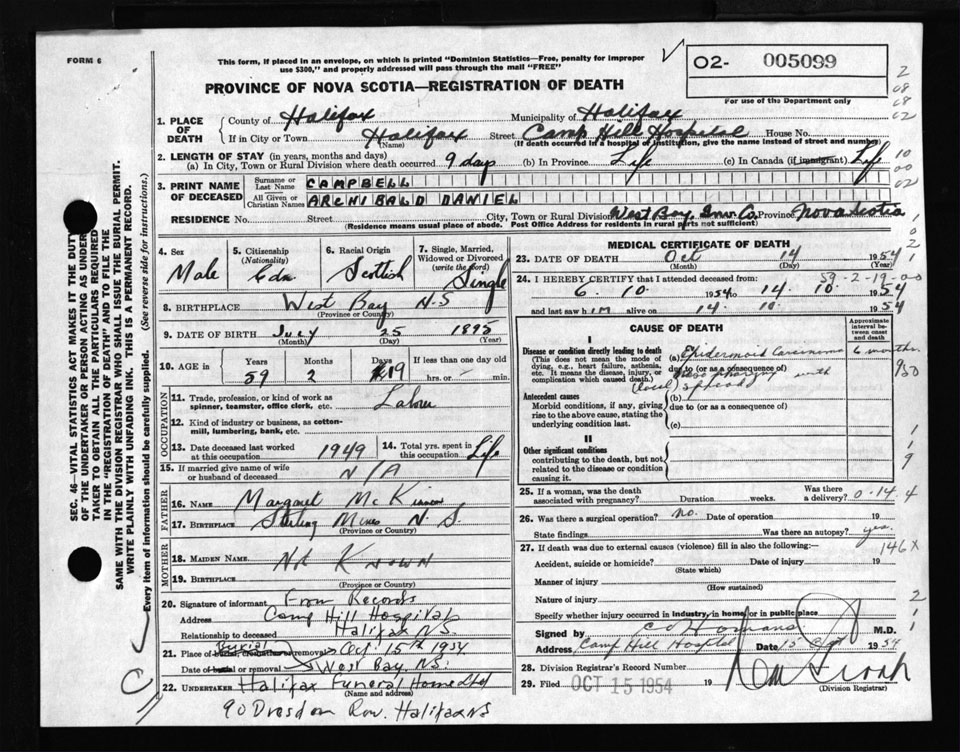 FORM 6
This form, if placed in an envelope, on which is printed "Dominion Statistics—Free, penalty for improper
use $300," and properly addressed will pass through the mail "FREE"
02- 005099
For use of the Department only
PROVINCE OF NOVA SCOTIA—REGISTRATION OF DEATH
1. PLACE OF DEATH County of Halifax Municipality of Halifax
If in City or Town Halifax (Name) Street Camp Hill Hospital House No.
(If death occurred in a hospital or institution, give the name instead of street and number)
2. LENGTH OF STAY (in years, months and days)
(a) In City, Town or Rural Division where death occurred 9 days (b) In Province Life (c) In Canada (if immigrant) Life
3. PRINT NAME OF DECEASED Surname or Last Name CAMPBELL
All Given or Christian Names ARCHIBALD DANIEL
RESIDENCE No. Street City, Town or Rural Division West Bay, Inv. Co. Province Nova Scotia
(Residence means usual place of abode. Post Office Address for residents in rural parts not sufficient)
4. Sex Male
5. Citizenship (Nationality) Cdn
6. Racial Origin Scottish
7. Single, Married, Widowed or Divorced (write the word) Single
8. BIRTHPLACE West Bay N.S
(Province or Country)
9. DATE OF BIRTH July 25 1895
(Month) (Day) (Year)
10. AGE in Years 59 Months 2 Days 19 If less than one day old hrs. or min.
OCCUPATION
11. Trade, profession, or kind of work as spinner, teamster, office clerk, etc.
12. Kind of industry or business, as cotton-mill, lumbering, bank, etc.
13. Date deceased last worked at this occupation 1949
14. Total yrs. spent in this occupation Life
15. If married give name of wife or husband of deceased N/A
FATHER
16. NAME Margaret McKinnon
17. BIRTHPLACE Mines N.S.
(Province or Country)
MOTHER
18. MAIDEN NAME Not Known
19. BIRTHPLACE
(Province or Country)
20. Signature of informant From Records
Address Camp Hill Hospital
Relationship to deceased Halifax NS
21. Place of burial, cremation or removal Burial Oct 15th 1954
Date of burial or removal West Bay, NS.
22. UNDERTAKER Halifax Funeral Home Ltd
(Name and address)
90 Dresden Row. Halifax NS
MEDICAL CERTIFICATE OF DEATH
23. DATE OF DEATH Oct 14 1954
(Month) (Day) (Year)
24. I HEREBY CERTIFY that I attended deceased from: 59-2-19-00
6 10 1954 to 14 10 1954
and last saw him alive on 14 10 1954
CAUSE OF DEATH
Approximate interval between onset and death
I
Disease or condition directly leading to death
(This does not mean the mode of dying, e.g., heart failure, asthenia, etc. It means the disease, injury, or complication which caused death.)
(a) Epidermoid Carcinoma 6 months
due to (or as a consequence of)
with (local) spread
Antecedent causes
Morbid conditions, if any, giving rise to the above cause, stating the underlying condition last.
(b)
due to (or as a consequence of)
(c)
II
Other significant conditions
contributing to the death, but not related to the disease or condition causing it.
25. If a woman, was the death associated with pregnancy? Duration weeks. Was there a delivery? 0-14.4
26. Was there a surgical operation? No. Date of operation 19
State findings Was there an autopsy? yes.
146X
27. If death was due to external causes (violence) fill in also the following:—
Accident, suicide or homicide? Date of injury 19
(State which)
Manner of injury
(How sustained)
Nature of injury
Specify whether injury occurred in industry, in home, or in public place
Signed by M.D.
Address Camp Hill Hospital Date 15 1954
28. Division Registrar's Record Number
29. Filed OCT 15 1954 19
(Division Registrar)
SEC. 46—VITAL STATISTICS ACT MAKES IT THE DUTY
OF THE UNDERTAKER OR PERSON ACTING AS UNDER-
TAKER TO OBTAIN ALL THE PARTICULARS REQUIRED
IN THE "REGISTRATION OF DEATH" AND TO FILE THE
SAME WITH THE DIVISION REGISTRAR WHO SHALL ISSUE THE BURIAL PERMIT.
WRITE PLAINLY WITH UNFADING INK. THIS IS A PERMANENT RECORD.
Every item of information should be carefully supplied. (See reverse side for instructions.)